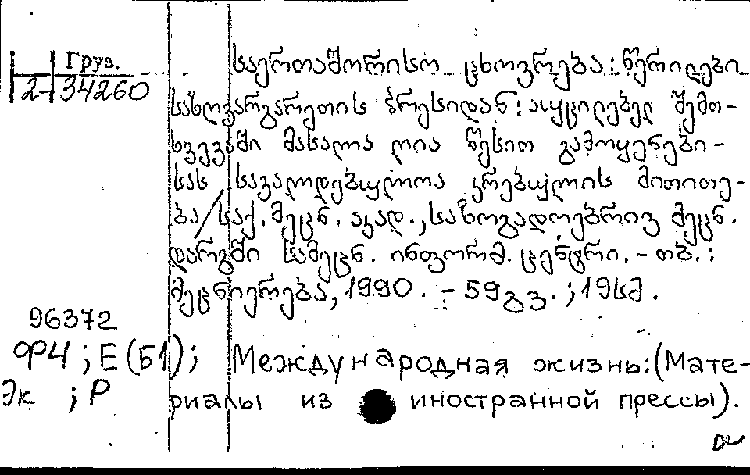 Груз.
2-34260
საერთაშორისო ცხოვრება: წერილები
საზღვარგარეთის პრესიდან: აუცილებელ შემთ-
ხვევაში მასალა ღია წესით გამოყენები-
სას სავალდებულოა კრებულის მითითე-
ბა/საქ. მეცნ. აკად., საზოგადოებრივ მეცნ.
დარგში სამეცნ. ინფორმ. ცენტრი. - თბ.:
მეცნიერება, 1990. - 59 გვ.; 19 სმ.
96372
ФЧ; Е(Б1); Международная жизнь: (Мате-
Эк ; Р риалы из иностранной прессы).